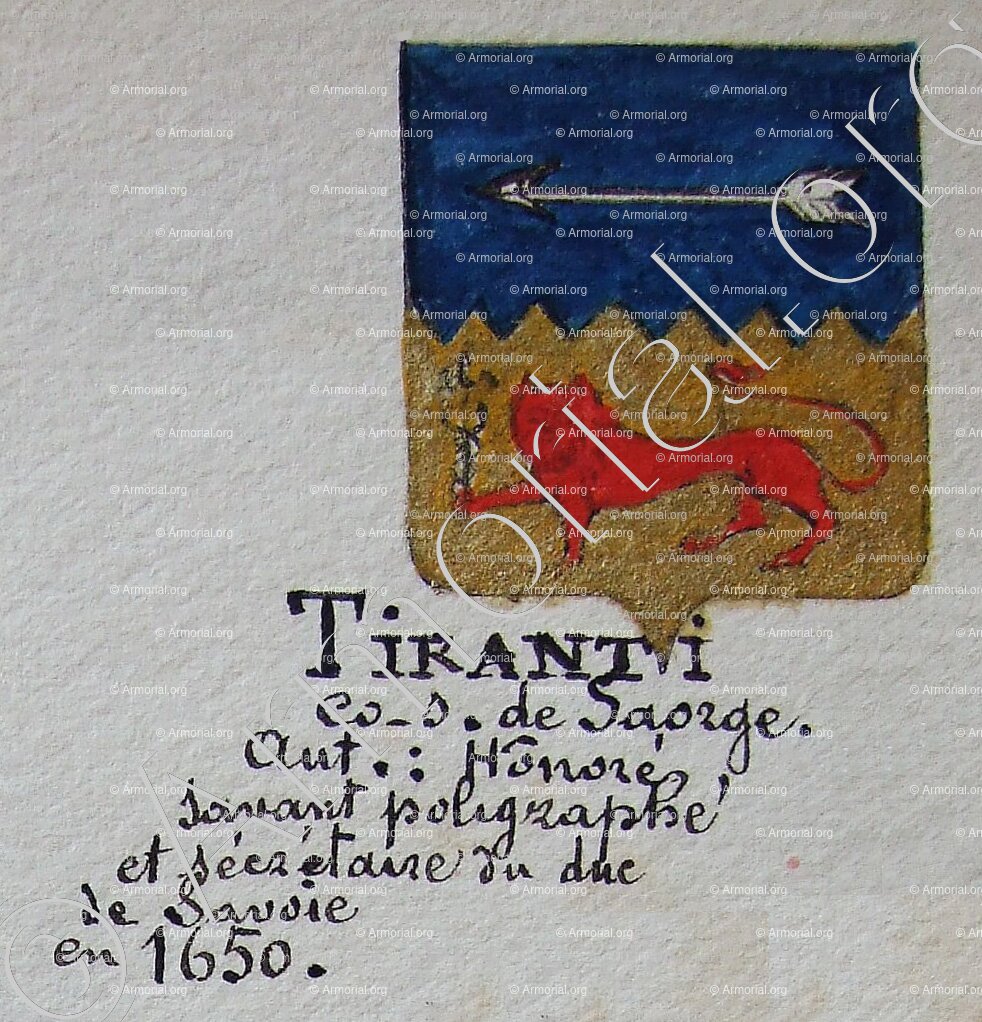 © Armorial.org
TIRANTI
co-s. de Saorge.
Aut.: Hônoré,
savant poligraphe
et sécrétaire du duc
de Savoie
en 1650.